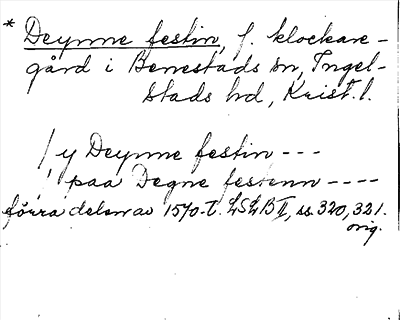 * Deynne festin, f. klockare-
gård i Benestads sn, Ingel-
stads hd, Krist. l.
/ y Deynne festin ---
/ paa Degne festenn ----
förra delen av 1570-t. LSLB II, ss. 320, 321.
orig.